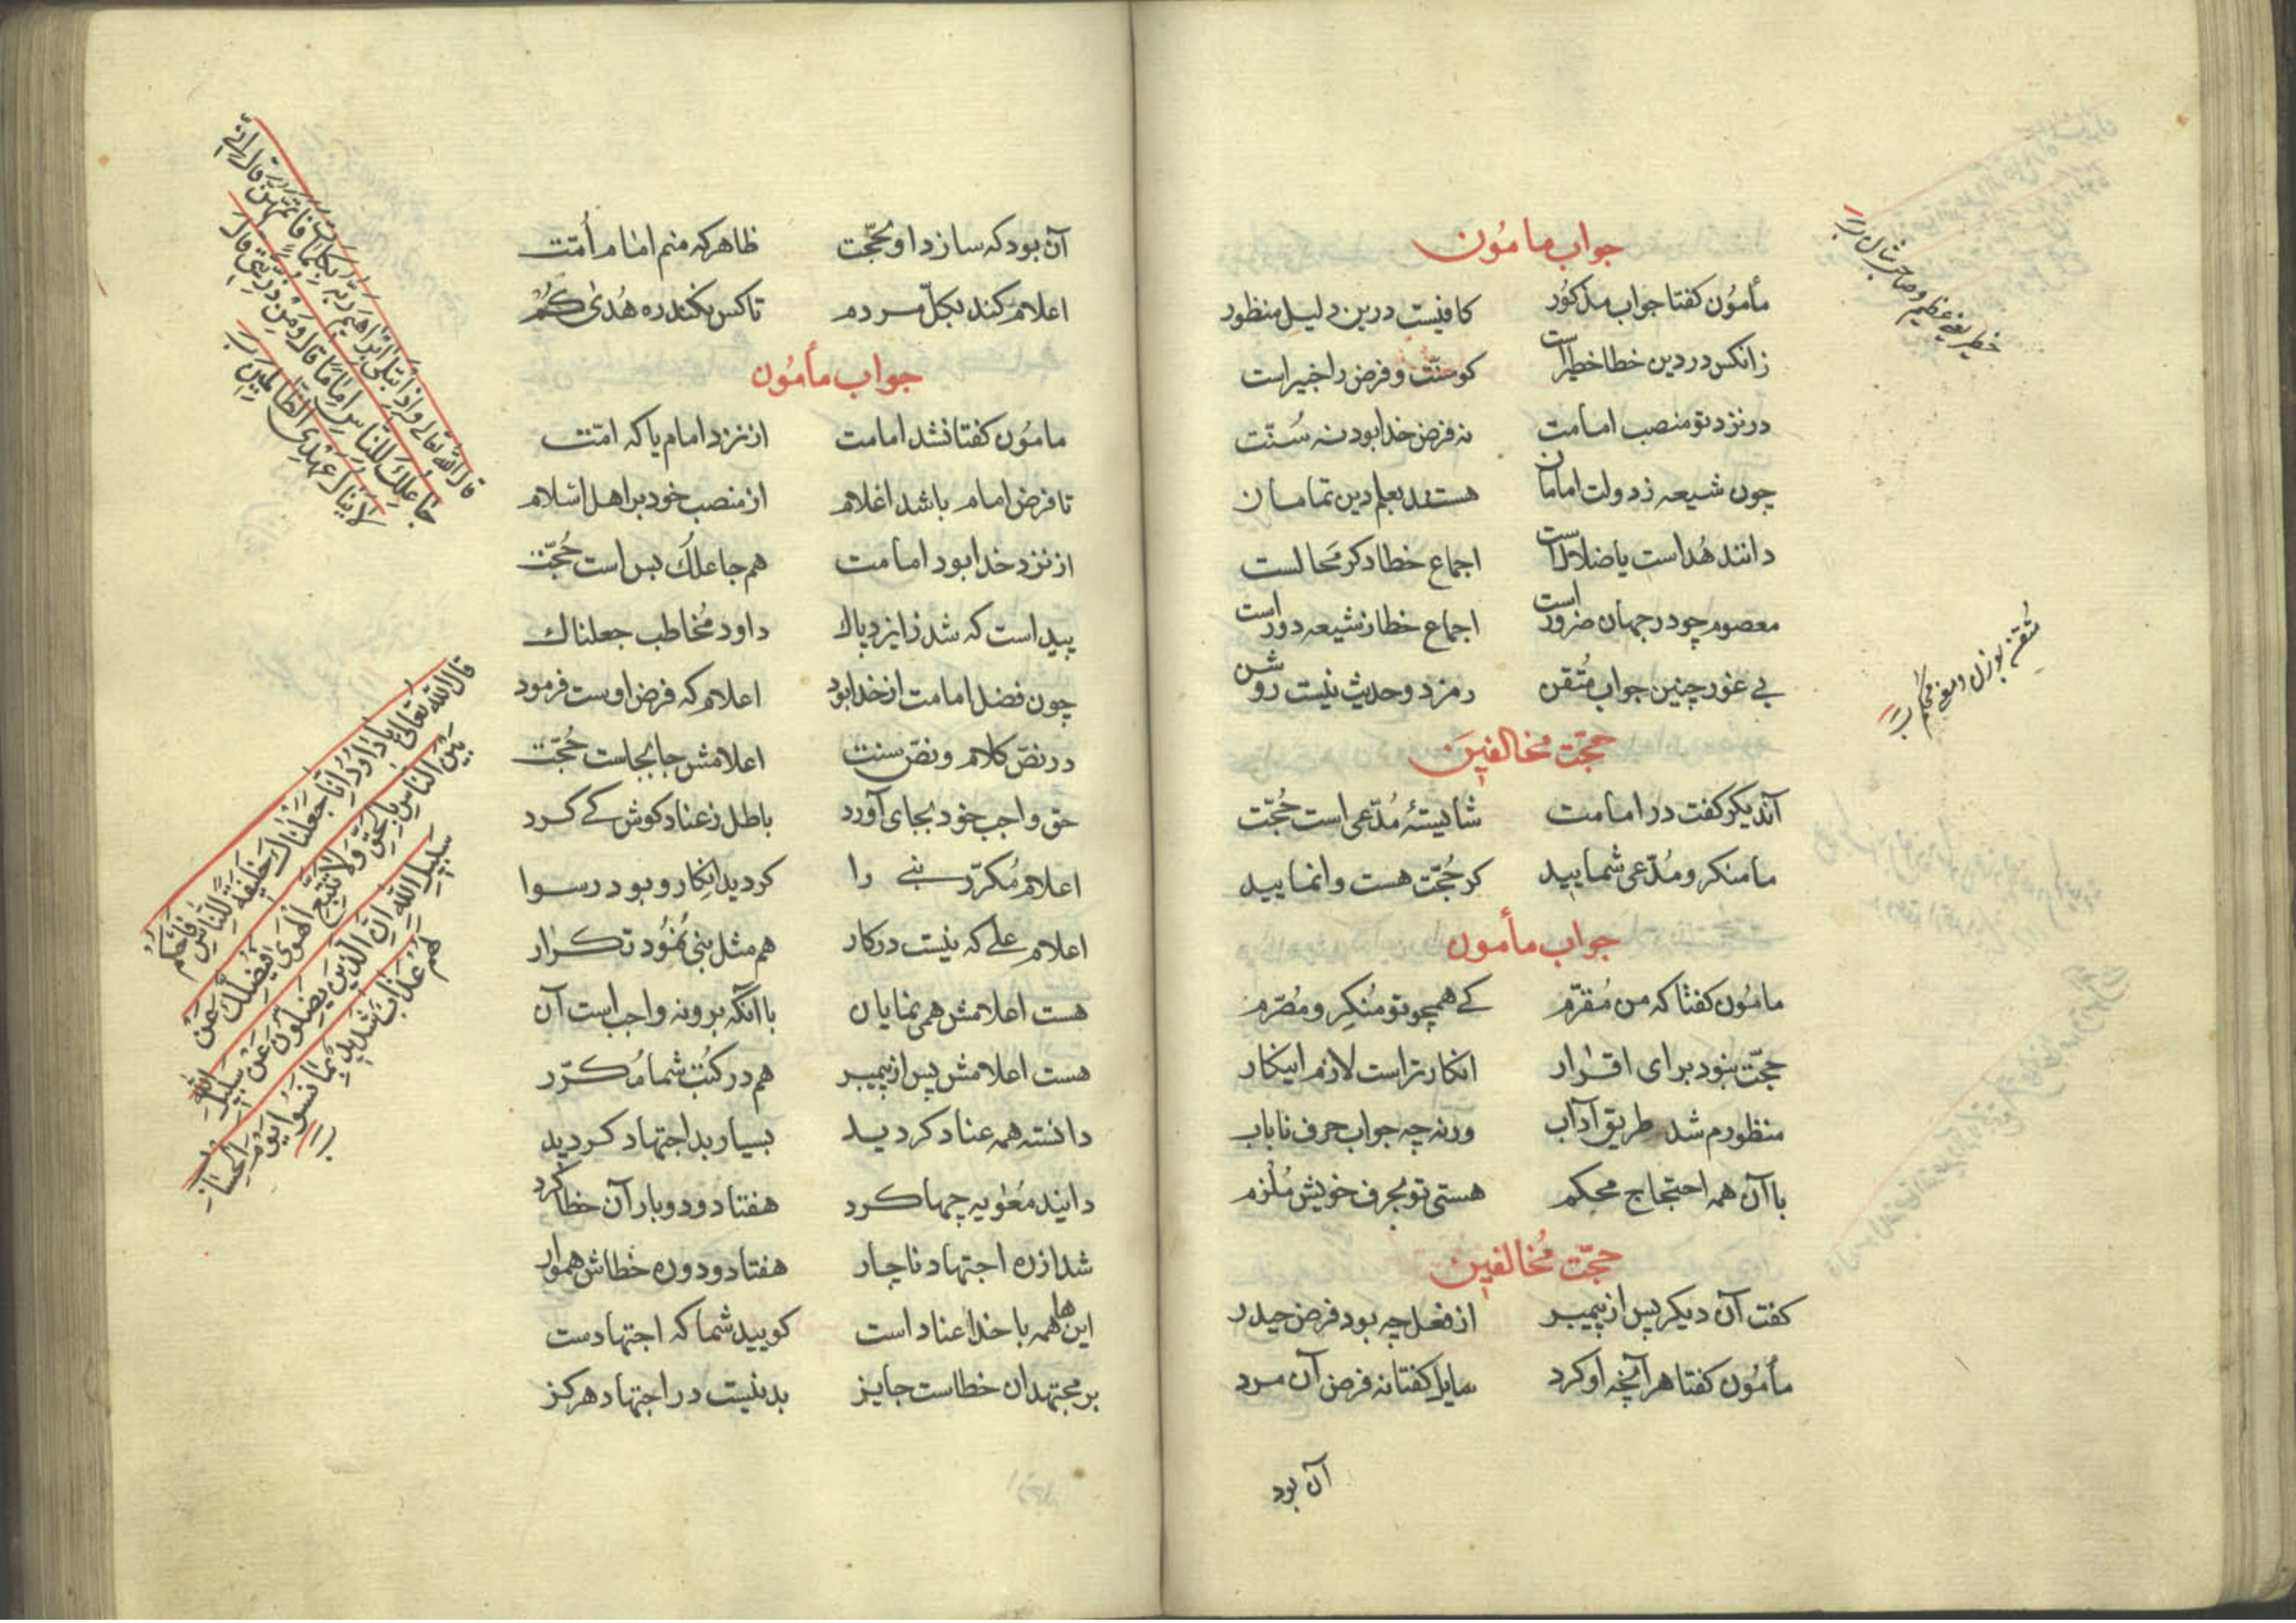 جواب مامون
مأمون کفتا جواب مذکور کافیست درین دلیل منظور
زانکس در دین خطا خطیر است کو سنّت و فرض را خبیر است
در نزد تو منصب امامت نه فرض خدا بود نه سُنّت
چون شیعه ز دولت امامان هستند بعلم دین تمامان
دانند هُداست یا ضلالست اجماع خطا دکر مَحالست
معصوم چو در جهان ضرور است اجماع خطا ز شیعه دور است
بی غور چنین جواب مُتقن رمز د و حدیث نیست روشن
حجّت مخالفین
آندیکر کفت در امامت شایستهٔ مُدّعی است حُجّت
ما منکر و مُدّعی شمایید کر حُجّت هست وانمایید
جواب مأمون
مامُون کفتا که من مُقرّم کی همچو تو مُنکِر و مُصّرم
حجّت نبود برای اقرار انکار تراست لازم اینکار
منظورم شد طریق آداب ورنه چه جواب حرف نایاب
با آن همه احتجاج محکم هستی تو بحرف خویش مُلزم
حجّت مُخالفین
کفت آن دیکر پس از پیمبر از فعل چه بود فرض حیدر
مأمُون کفتا هر آنچه او کرد سایل کفتا نه فرض آن مرد
آن بود
خطیر یعنی عظیم و صاحب شان
مُتقن بوزن و معنی محکم
آن بود که سازد او محجّت ظاهر که منم امام اُمّت
اعلام کند بکلّ مردم تا کس نکند ره هُدی کُم
جواب مأمُون
مامُون کفتا نشد امامت از نزد امام یا که امّت
تا فرض امام باشد اعلام از منصب خود بر اهل اسلام
از نزد خدا بود امامت هم جاعلک بس است حُجّت
پیداست که شد ز ایزد پاک داود مُخاطب جعلناک
چون فضل امامت از خدا بود اعلام که فرض اوست فرمود
در نصّ کلام و نصّ سنت اعلامش جا بجاست حُجّت
حق واجب خود بجای آورد باطل ز عناد کوش کی کرد
اعلام مُکرّر نبی را کردید انکار و بود رسوا
اعلام علی که نیست در کار هم مثل نبی نمُود تکرار
هست اعلامش همی نمایان با آنکه برو نه واجب است آن
هست اعلامش پس از پیمبر هم در کتب شما مُکرّر
دانسته همه عناد کردید بسیار بد اجتهاد کردید
دانید مُعٰویه چها کرد هفتاد و دو بار آن خطا کرد
شد از ره اجتهاد ناچار هفتاد و دو ره خطاش هموار
این ها همه با خدا عناد است کویید شما که اجتهادست
بر مجتهدان خطاست جایز بد نیست در اجتهاد هرکز
قال الله تعالی و اذ ابتلی ابراهیم ربّه بکلمات فاتمهن قال انی
جاعلک للناس اماما قال و من ذریتی قال
لا ینال عهدی الظالمین
قال الله تعالی یا داود انا جعلناک خلیفة للناس فاحکم
بین الناس بالحق و لا تتبع الهوی فیضلک عن
سبیل الله ان الذین یضلون عن سبیل الله
لهم عذاب شدید بما نسوا یوم الحساب